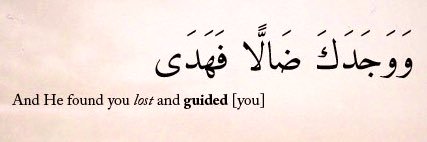 وَوَجَدَكَ ضَالًّا فَهَدَى
And He found you lost and guided [you]